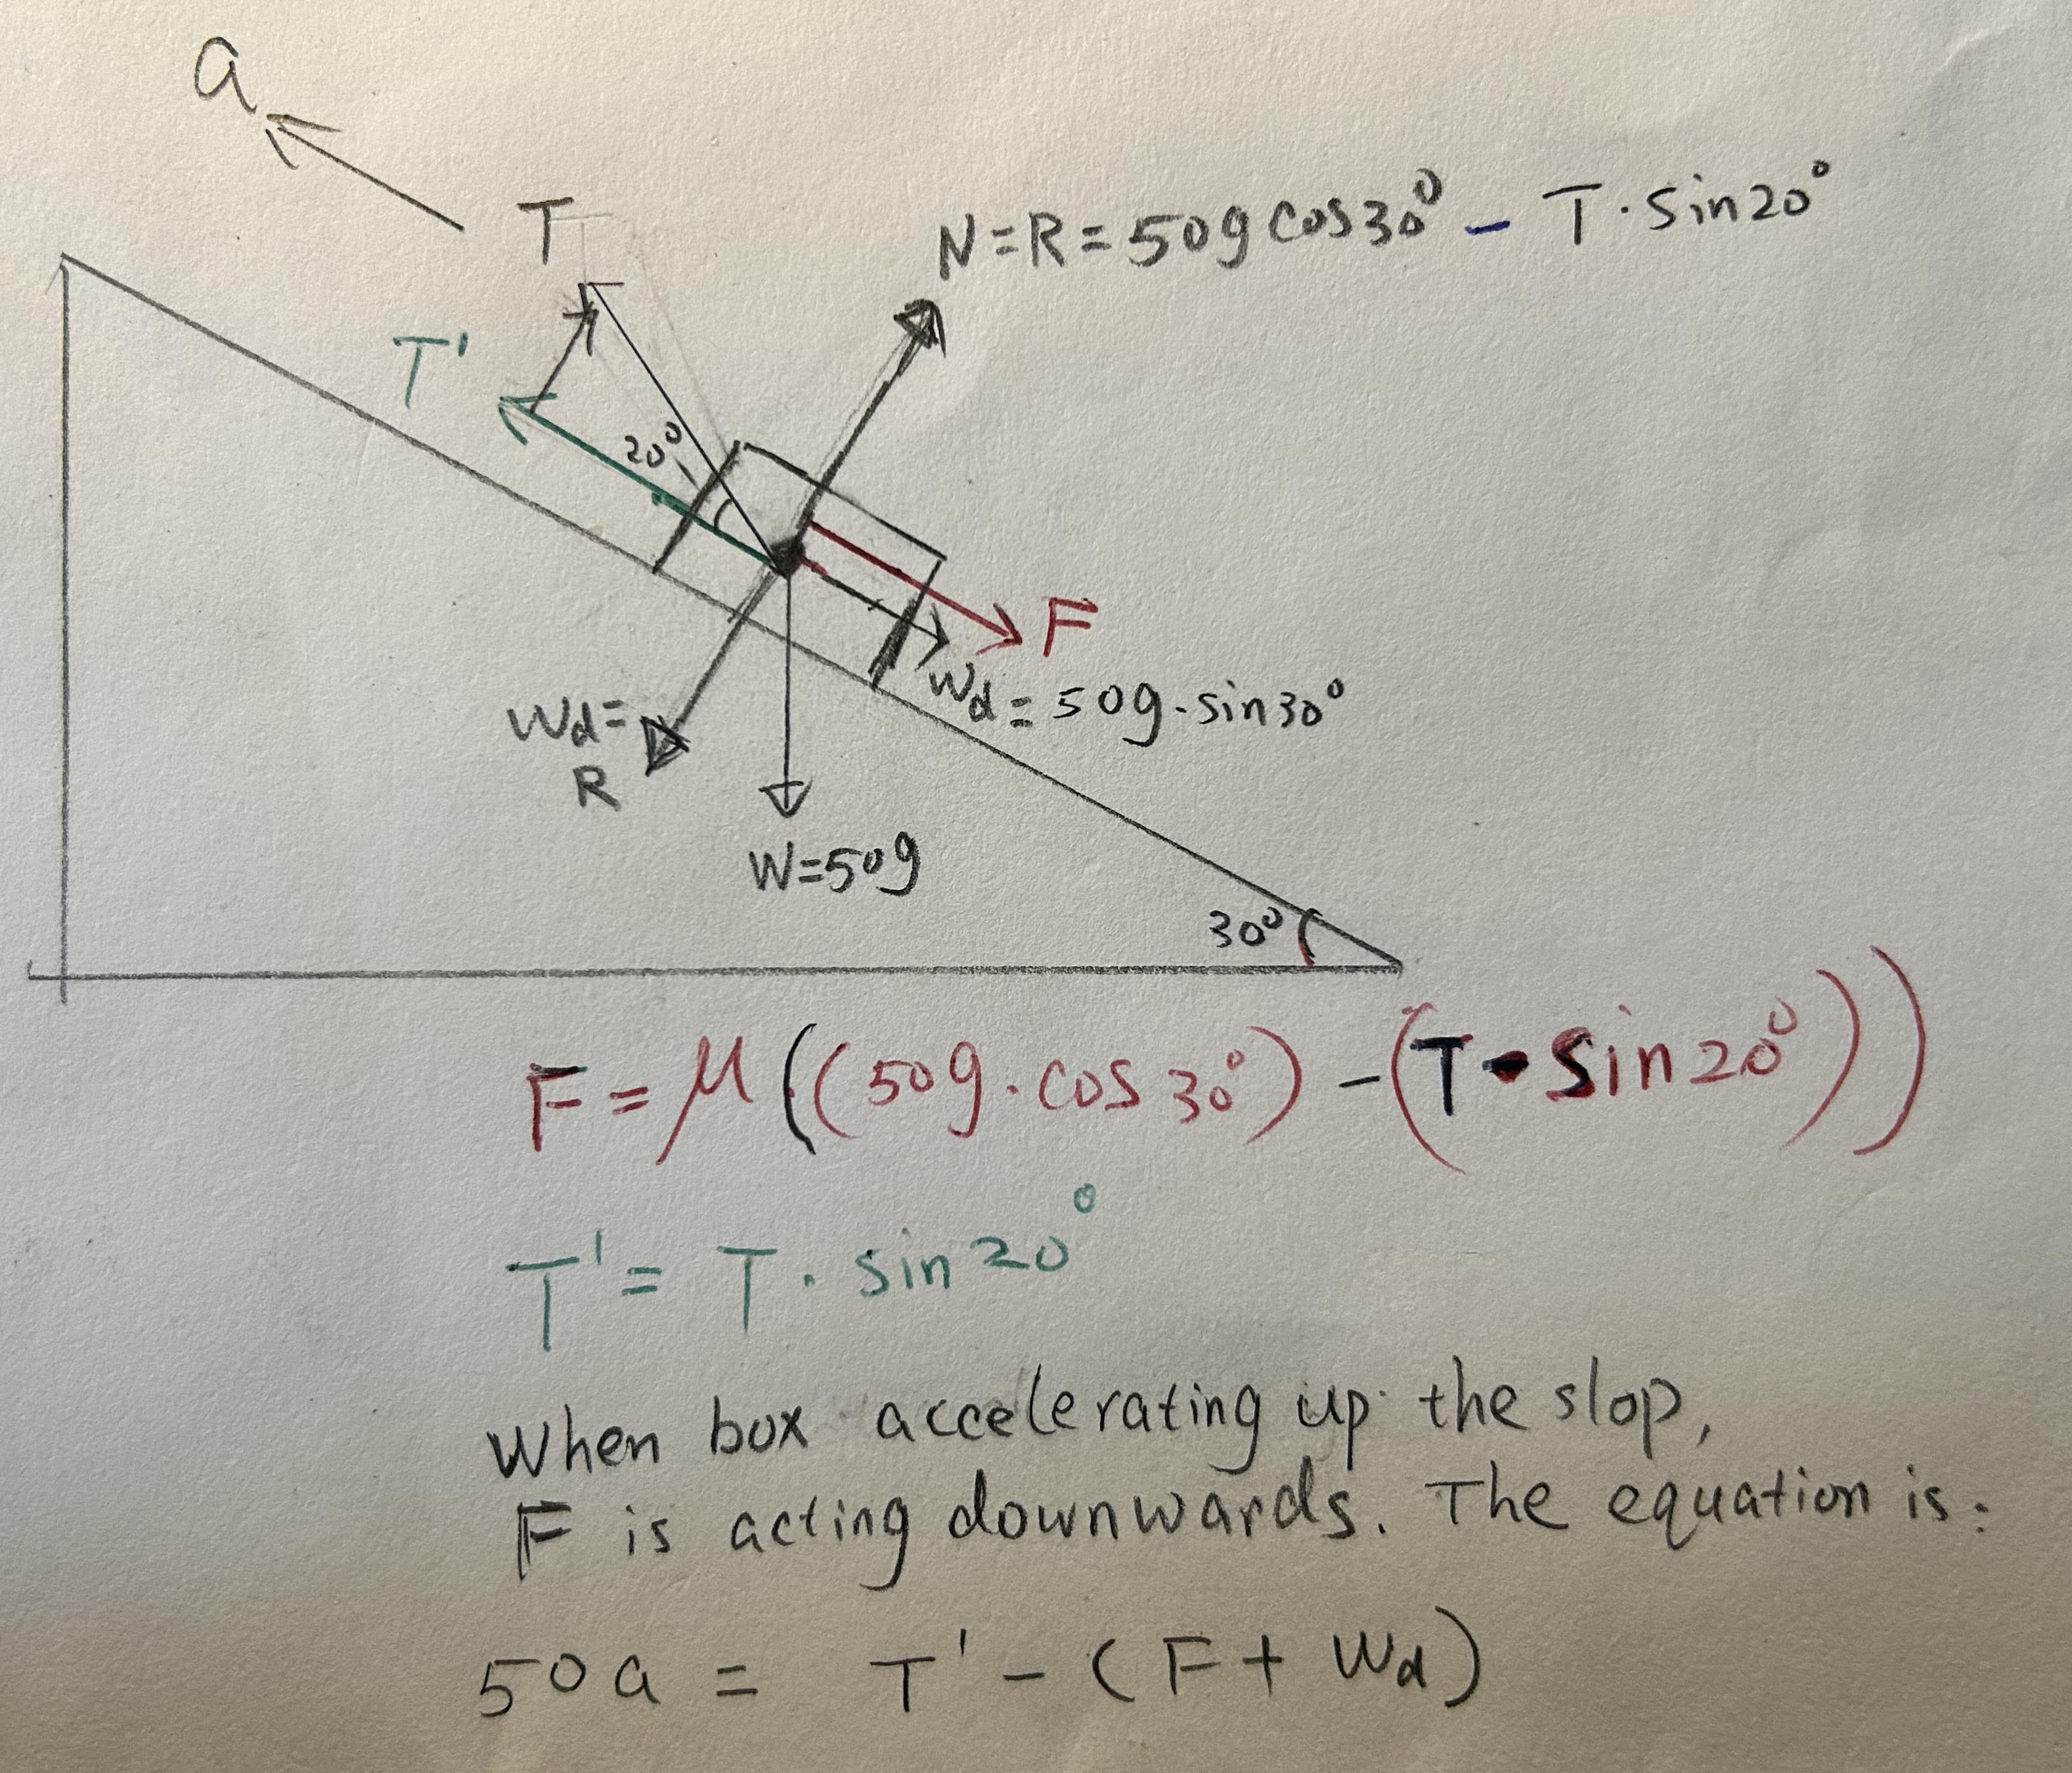 a
T
N=R=50g cos30° - T·sin20°
T'
20°
F
Wd=50g·sin30°
Wd=
R
W=50g
30°
F=μ((50g·cos30°)-(T·sin20°))
T'= T·sin20°
When box accelerating up the slop,
F is acting downwards. The equation is:
50a = T'-(F+Wd)